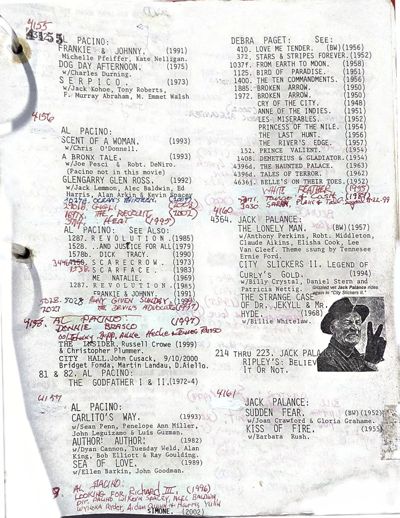 4155
4355
AL PACINO:
FRANKIE & JOHNNY. (1991)
Michelle Pfeiffer, Kate Nelligan.
DOG DAY AFTERNOON. (1975)
w/Charles Durning.
S E R P I C O. (1973)
w/Jack Kohoe, Tony Roberts,
F. Murray Abraham, M. Emmet Walsh
4156
AL PACINO:
SCENT OF A WOMAN. (1993)
w/Chris O'Donnell.
A BRONX TALE. (1993)
w/Joe Pesci & Robt. DeNiro.
(Pacino not in this movie)
GLENGARRY GLEN ROSS. (1992)
w/Jack Lemmon, Alec Baldwin, Ed
Harris, Alan Arkin & Kevin Spacey
THE RECRUIT (2002)
HEAT (1995)
AL PACINO: See Also:
1287. R E V O L U T I O N. (1985)
1528. ..AND JUSTICE FOR ALL (1979)
1578b. DICK TRACY. (1990)
S C A R E C R O W. (1973)
S C A R F A C E. (1983)
ME NATALIE. (1969)
1287. R E V O L U T I O N. (1985)
FRANKIE & JOHNNY (1991)
ANY GIVEN SUNDAY
DEVILS ADVOCATE (1997)
AL PACINO: (1997)
DONNIE BRASCO
THE INSIDER. Russell Crowe (1999)
& Christopher Plummer.
CITY HALL. John Cusack, 9/10/2000
Bridget Fonda, Martin Landau, D.Aiello.
81 & 82. AL PACINO:
THE GODFATHER I & II. (1972-4)
4157
AL PACINO:
CARLITO'S WAY. (1993)
w/Sean Penn, Penelope Ann Miller,
John Leguizamo & Luis Guzman.
AUTHOR: AUTHOR: (1982)
w/Dyan Cannon, Tuesday Weld, Alan
King, Bob Elliott & Ray Goulding.
SEA OF LOVE. (1989)
w/Ellen Barkin, John Goodman.
AL PACINO: (1996)
LOOKING FOR RICHARD III.
PAT. PACINO w/KEVIN SPACEY, ALEC BALDWIN,
WYNONA Ryder, Aidan Quinn & HARRIS YULIN
SIMONE. (2002)
DEBRA PAGET: See:
410. LOVE ME TENDER. (BW) (1956)
372. STARS & STRIPES FOREVER. (1952)
1037f. FROM EARTH TO MOON. (1958)
1125. BIRD OF PARADISE. (1951)
1400. THE TEN COMMANDMENTS. (1956)
1885. BROKEN ARROW. (1950)
1972. BROKEN ARROW. (1950)
CRY OF THE CITY. (1948)
ANNE OF THE INDIES. (1951)
LES MISERABLES. (1952)
PRINCESS OF THE NILE. (1954)
THE LAST HUNT. (1956)
THE RIVER'S EDGE. (1957)
152. PRINCE VALIENT. (1954)
1408. DEMETRIUS & GLADIATOR. (1954)
4396d. THE HAUNTED PALACE. (1963)
4396d. TALES OF TERROR. (1962)
4636j. BELLE'S ON THEIR TOES. (1952)
WHITE FEATHER (1955)
4160
4364. JACK PALANCE:
THE LONELY MAN. (BW) (1957)
w/Anthony Perkins, Robt. Middleton,
Claude Aikins, Elisha Cook, Lee
Van Cleef. Theme sung by Tennesee
Ernie Ford.
CITY SLICKERS II. LEGEND OF
CURLY'S GOLD. (1994)
w/Billy Crystal, Daniel Stern and
Patricia Nettig.
Grizzled vet Jack Palance rides
again in "City Slickers II."
THE STRANGE CASE
OF DR. JECKYLL & MR.
HYDE. (1968)
w/Billie Whitelaw.
214 THRU 223. JACK PALA
RIPLEY'S: BELIEV
IT OR NOT.
4161
JACK PALANCE:
SUDDEN FEAR. (BW) (1952)
w/Joan Crawford & Gloria Grahame.
KISS OF FIRE. (1955)
w/Barbara Rush.